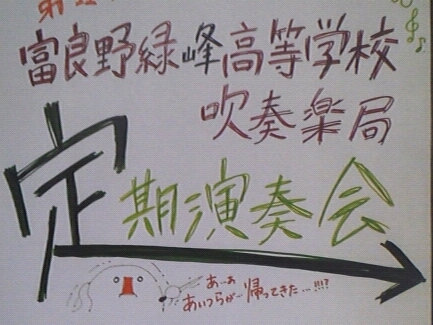 富良野緑峰高等学校
吹奏楽局
定期演奏会
あーぁ
あいつらが…帰ってきた…!!!?